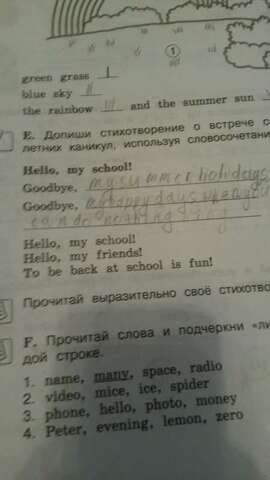 green grass I
blue sky II
the rainbow III and the summer sun
E. Допиши стихотворение о встрече с
летних каникул, используя словосочетани
Hello, my school!
Goodbye, my summer holidays
Goodbye, my happy days when you
can do nothing
Hello, my school!
Hello, my friends!
To be back at school is fun!
Прочитай выразительно своё стихотво
F. Прочитай слова и подчеркни «ли
дой строке.
1. name, many, space, radio
2. video, mice, ice, spider
3. phone, hello, photo, money
4. Peter, evening, lemon, zero